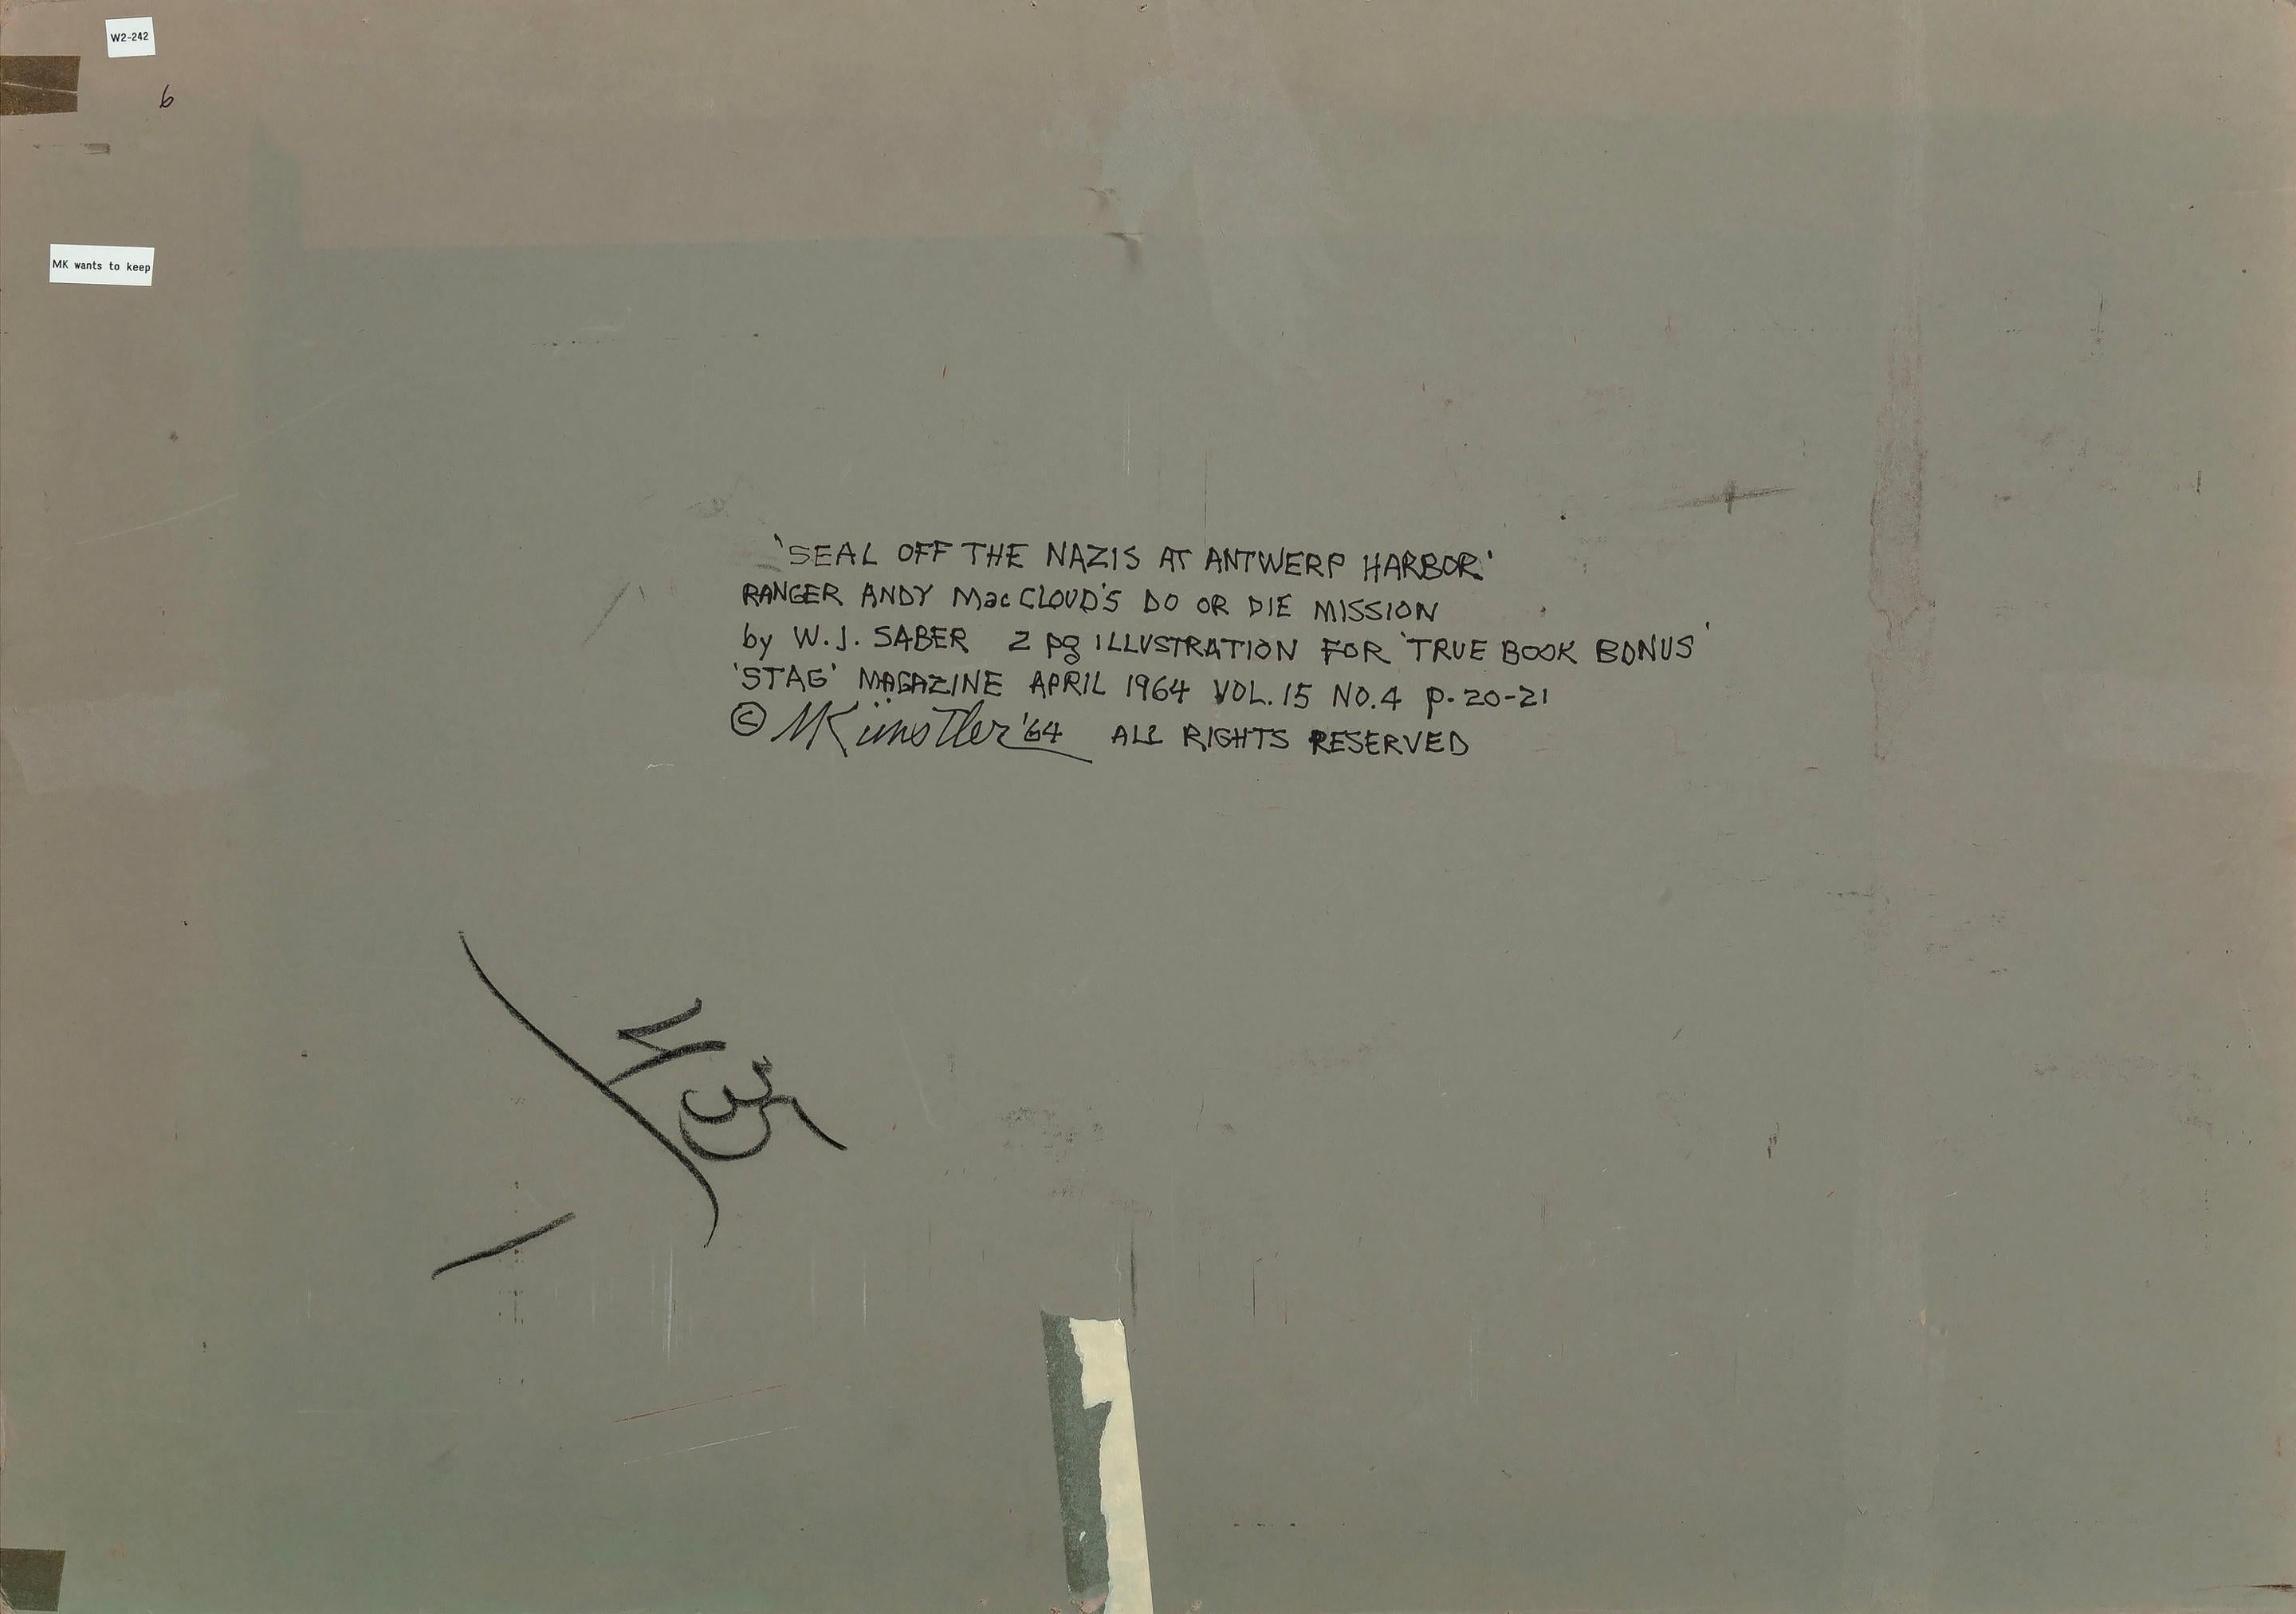 W2-242
6
MK wants to keep
'SEAL OFF THE NAZIS AT ANTWERP HARBOR'
RANGER ANDY MacCLOUD'S DO OR DIE MISSION
by W.J. SABER 2 pg ILLUSTRATION FOR 'TRUE BOOK BONUS'
'STAG' MAGAZINE APRIL 1964 VOL. 15 NO. 4 p. 20-21
© MKünstler '64 ALL RIGHTS RESERVED